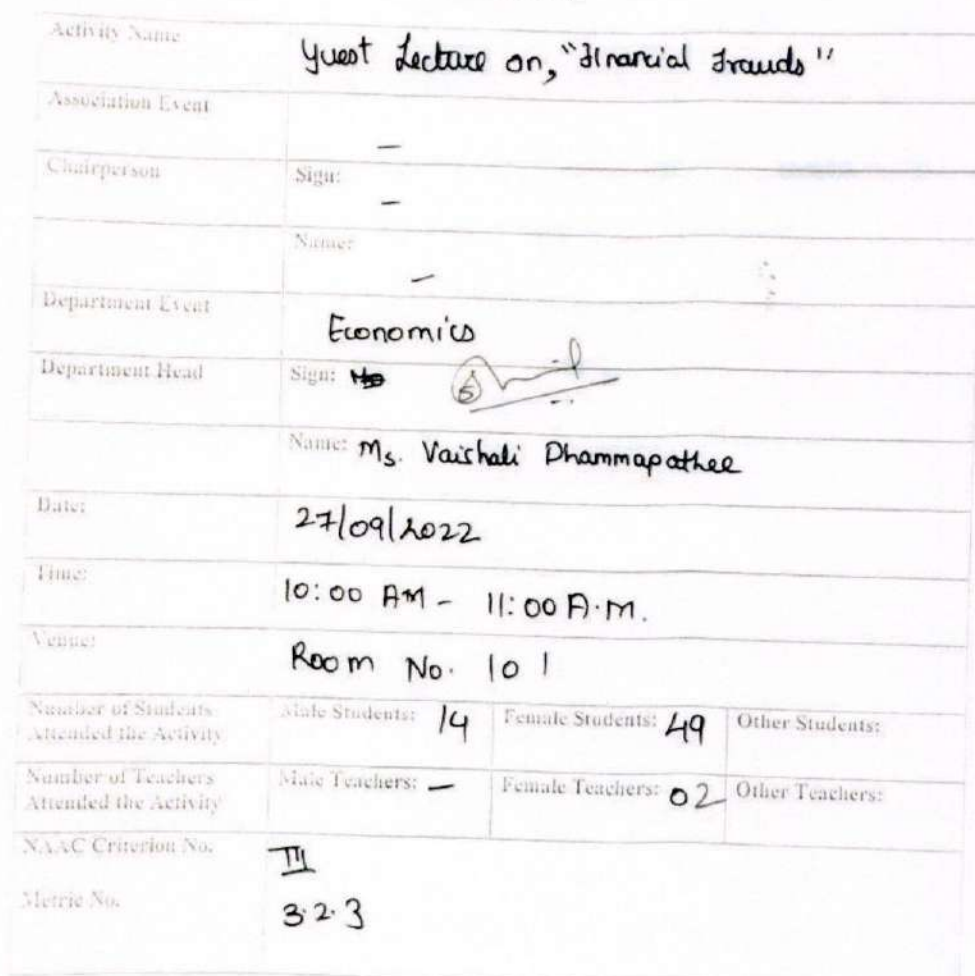 Activity Name Guest Lecture on, "Financial Frauds"
Association Event —
Chairperson Sign: —
Name: —
Department Event Economics
Department Head Sign:
Name: Ms. Vaishali Dhammapathee
Date: 27/09/2022
Time: 10:00 AM - 11:00 A.M.
Venue: Room No. 101
Number of Students Male Students: 14 Female Students: 49 Other Students:
Attended the Activity
Number of Teachers Male Teachers: — Female Teachers: 02 Other Teachers:
Attended the Activity
NAAC Criterion No. III
Metric No. 3.2.3